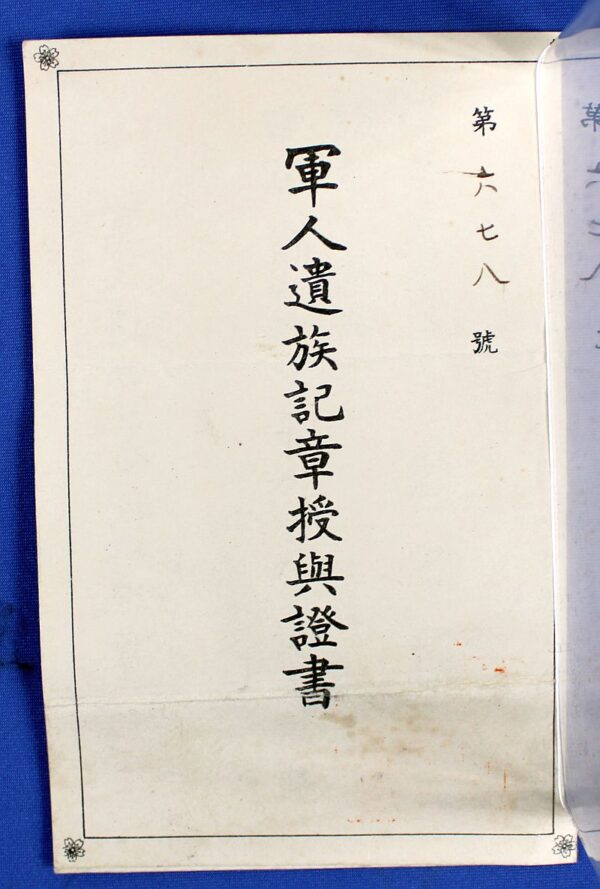 第六七八號
軍人遺族記章授與證書